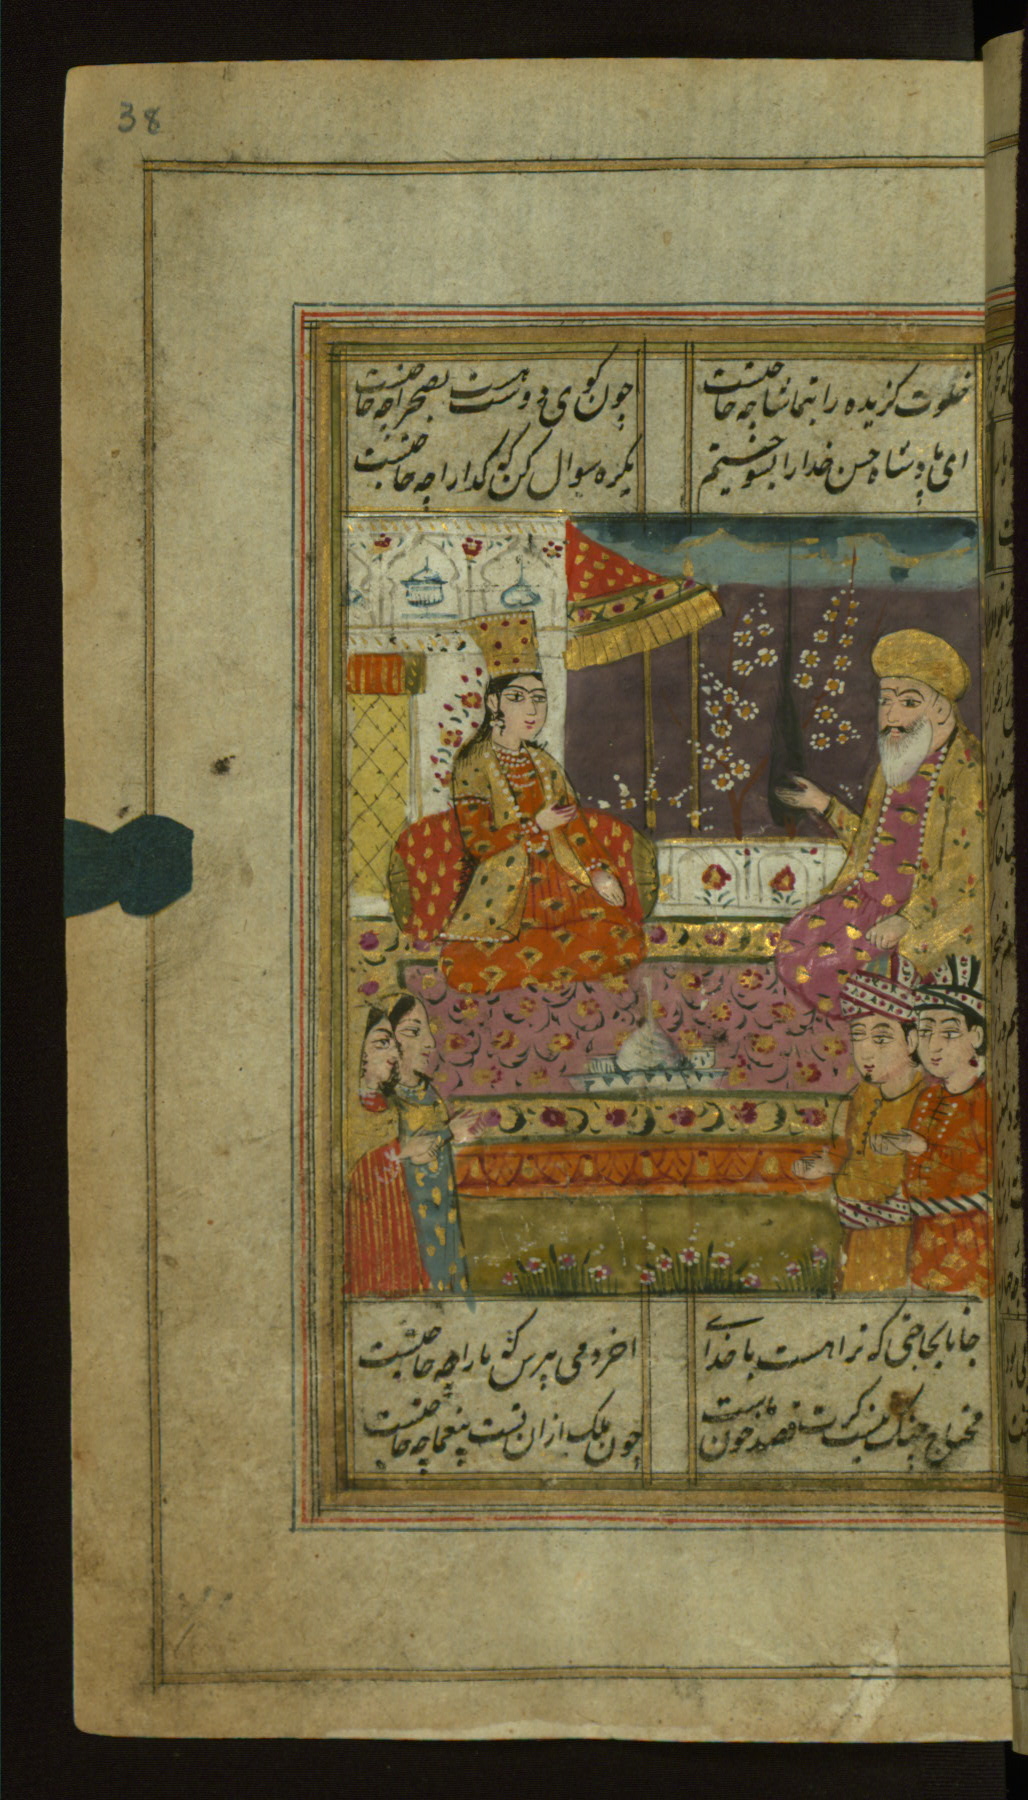 38
خلوت کزیده را بتماشا چه حاجتست چون کوی دوست هست بصحرا چه حاجتست
ای پادشاه حسن خدارا بسوختیم یکره سوال کن که کدارا چه حاجتست
جانا بحاجتی که ترا هست با خدای اخر دمی بپرس که مارا چه حاجتست
محتاج جنک نیست کرت قصد خون ماست چون ملک ازان تست بیغما چه حاجتست